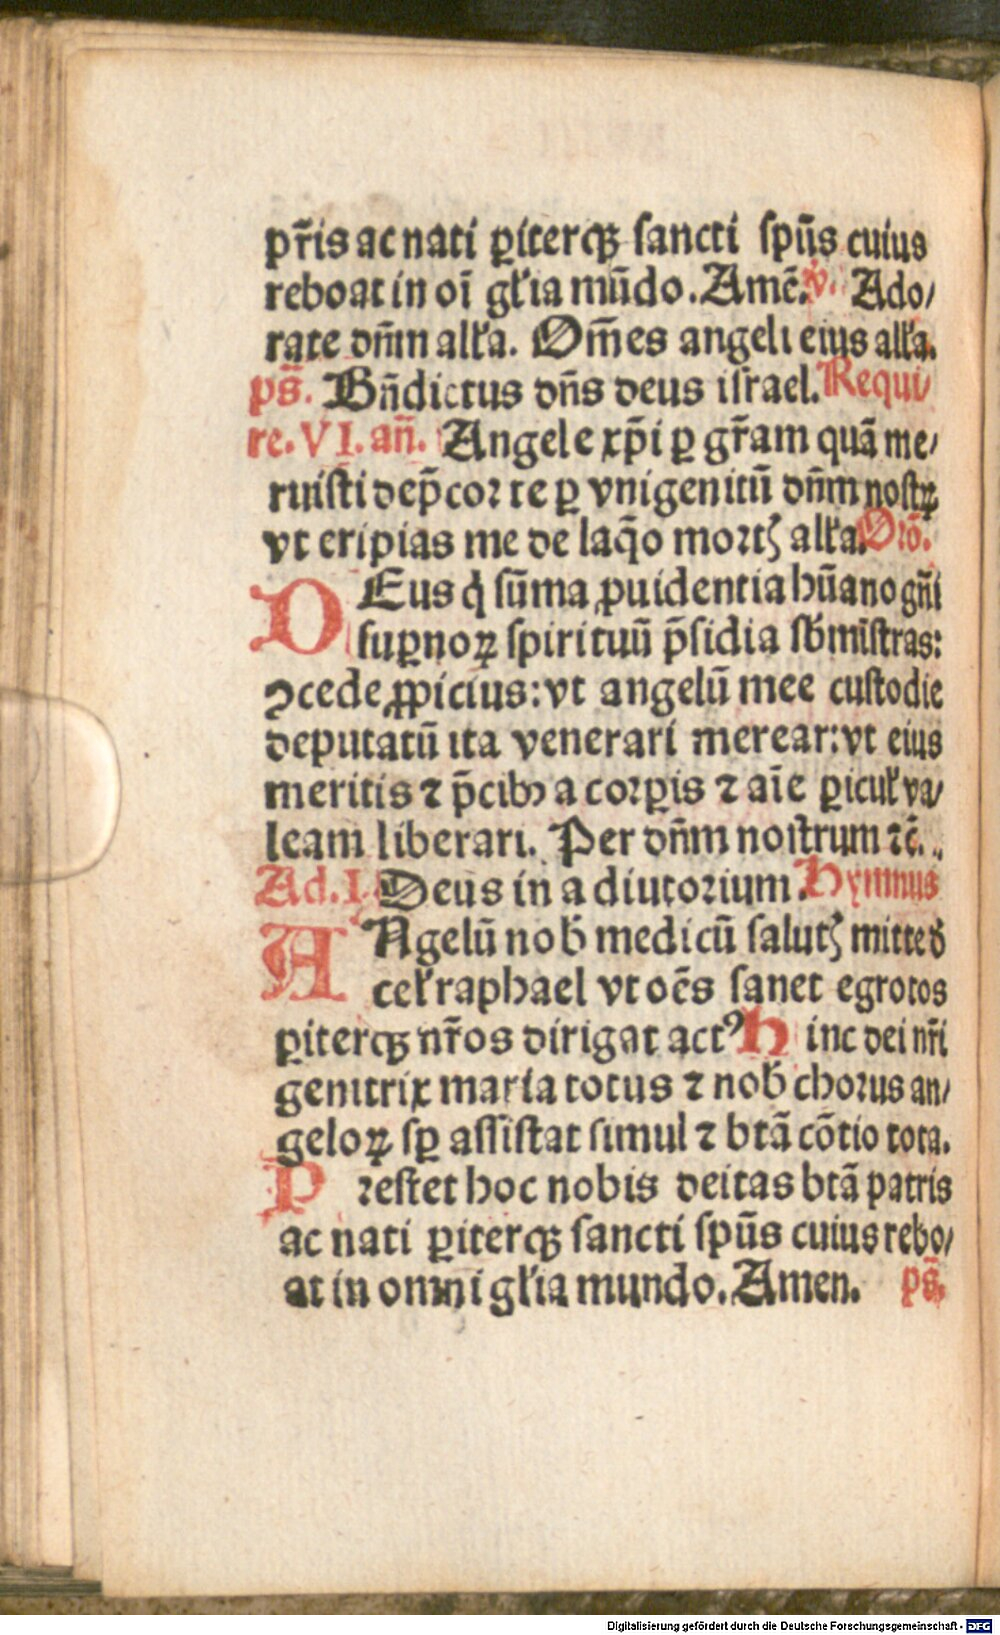 pr̄is ac nati ꝑiterqꝫ sancti spūs cuius
reboat in oī gl̄ia mūdo. Amē. v. Ado/
rate dn̄m all̄a. Om̄es angeli eius all̄a.
ps̄. Bn̄dictus dn̄s deus israel. Requi/
re. VI. an̄. Angele xp̄i ꝑ gr̄am quā me/
ruisti dep̄cor te ꝑ vnigenitū dn̄m nostrꝫ
vt eripias me de laq̄o mortꝭ all̄a. Orō.
DEus q̇ sūma ꝓuidentia hūano gn̄i
suꝑnoꝝ spirituū p̄sidia sb̄mīstras:
ꝯcede ꝓpicius: vt angelū mee custodie
deputatū ita venerari merear: vt eius
meritis ⁊ p̄cibꝫ a corꝑis ⁊ aīe ꝑicul̄ va/
leam liberari. Per dn̄m nostrum ⁊c̄.
Ad. I. Deus in adiutorium. Hymnus
ANgelū nob̄ medicū salutꝭ mitte d̄
cel̄ raphael vt oēs sanet egrotos
ꝑiterqꝫ nr̄os dirigat actꝰ Hinc dei nr̄i
genitrix maria totus ⁊ nob̄ chorus an/
geloꝝ sꝑ assistat simul ⁊ btā cōtio tota.
Prestet hoc nobis deitas btā patris
ac nati ꝑiterqꝫ sancti spūs cuius rebo/
at in omni gl̄ia mundo. Amen. ps̄.
Digitalisierung gefördert durch die Deutsche Forschungsgemeinschaft - DFG